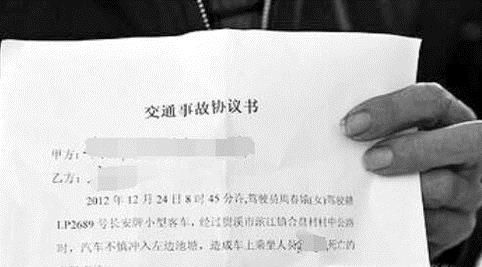 交通事故协议书
甲方：
乙方：
2012年12月24日8时45分许,驾驶员周春娥(女)驾驶赣
LP2689号长安牌小型客车，经过贵溪市滨江镇合盘村村中公路
时，汽车不慎冲入左边池塘，造成车上乘坐人员 死亡的